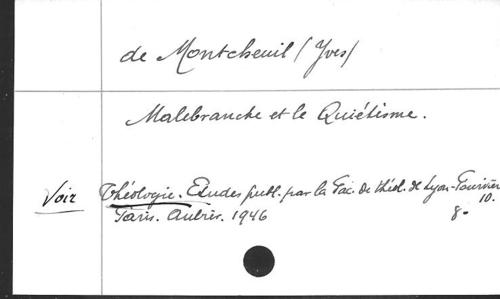 de Montcheuil (Yves)
Malebranche et le Quiétisme.
Voir Théologie. Etudes publ. par la Fac. de théol. de Lyon-Fourvière
10.
Paris. Aubier. 1946 8-